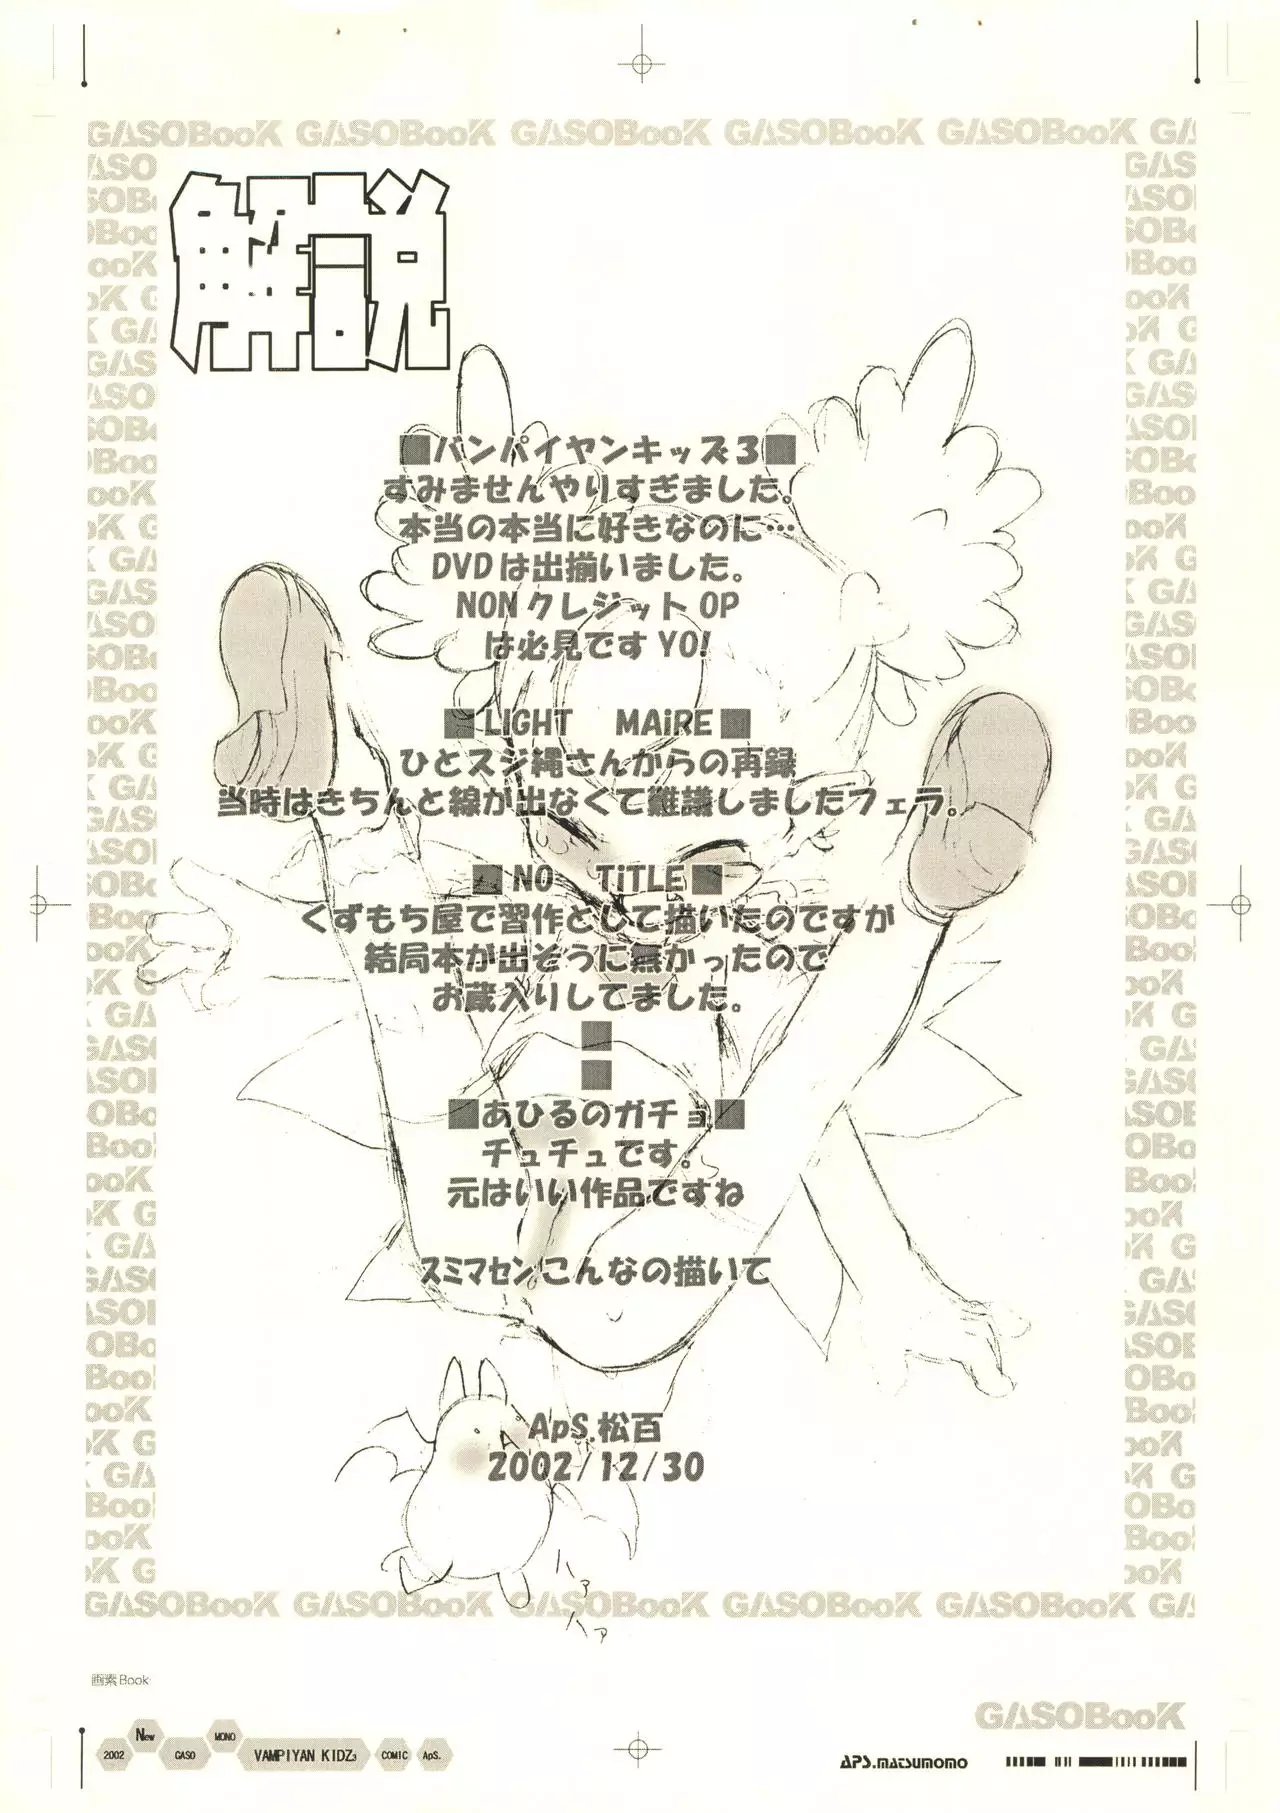 GASOBooK GASOBooK GASOBooK GASOBooK GASOBooK GA
解説
■バンパイヤンキッズ3■
すみませんやりすぎました。
本当の本当に好きなのに…
DVDは出揃いました。
NONクレジットOP
は必見ですYO!
■LIGHT MAiRE■
ひとスジ縄さんからの再録
当時はきちんと線が出なくて難議しましたフェラ。
■NO TiTLE■
くずもち屋で習作として描いたのですが
結局本が出そうに無かったので
お蔵入りしてました。
■
■
■あひるのガチョ■
チュチュです。
元はいい作品ですね
スミマセンこんなの描いて
ApS.松百
2002/12/30
ハァ
ハァ
GASOBooK GASOBooK GASOBooK GASOBooK GASOBooK GA
画素Book
GASOBooK
2002 New GASO MONO VAMPIYAN KIDZ3 COMIC ApS.
APS.matsumomo